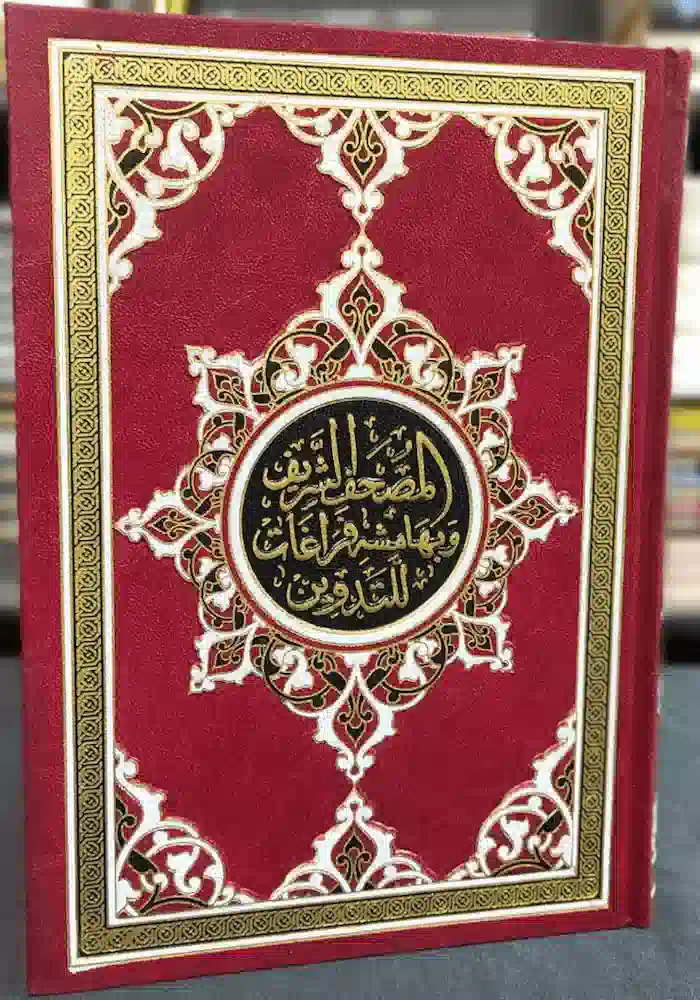 المُصْحَفُ الشَّرِيفُ
وَبِهَامِشِهِ فَرَاغَاتٌ
لِلتَّدْوِينِ